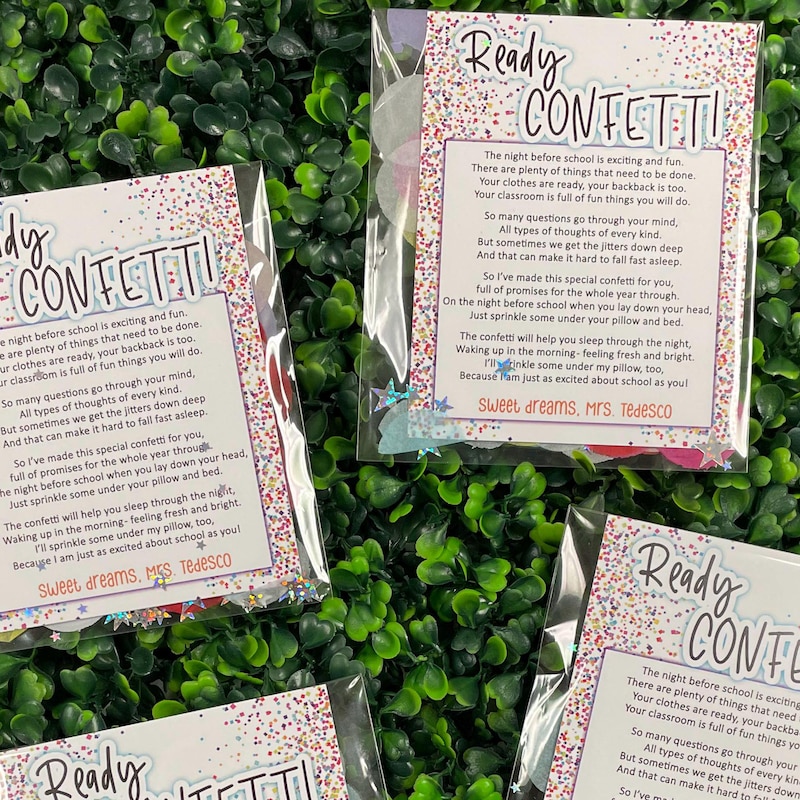 Ready
CONFETTI
The night before school is exciting and fun.
There are plenty of things that need to be done.
Your clothes are ready, your backback is too.
Your classroom is full of fun things you will do.
So many questions go through your mind,
All types of thoughts of every kind.
But sometimes we get the jitters down deep
And that can make it hard to fall fast asleep.
So I've made this special confetti for you,
full of promises for the whole year through.
On the night before school when you lay down your head,
Just sprinkle some under your pillow and bed.
The confetti will help you sleep through the night,
Waking up in the morning- feeling fresh and bright.
I'll sprinkle some under my pillow, too,
Because I am just as excited about school as you!
Sweet dreams, Mrs. Tedesco
CONFETTI
night before school is exciting and fun.
are plenty of things that need to be done.
clothes are ready, your backback is too.
classroom is full of fun things you will do.
So many questions go through your mind,
All types of thoughts of every kind.
But sometimes we get the jitters down deep
And that can make it hard to fall fast asleep.
So I've made this special confetti for you,
full of promises for the whole year through.
the night before school when you lay down your head,
Just sprinkle some under your pillow and bed.
The confetti will help you sleep through the night,
Waking up in the morning- feeling fresh and bright.
I'll sprinkle some under my pillow, too,
Because I am just as excited about school as you!
Sweet dreams, Mrs. Tedesco
Ready
CONFE
The night before school is exciting
There are plenty of things that need
Your clothes are ready, your backba
Your classroom is full of fun things yo
So many questions go through your
All types of thoughts of every
But sometimes we get the jitters
And that can make it hard to fall fast
So I've made this special confetti
full of promises for the whole
Ready
CONFETTI